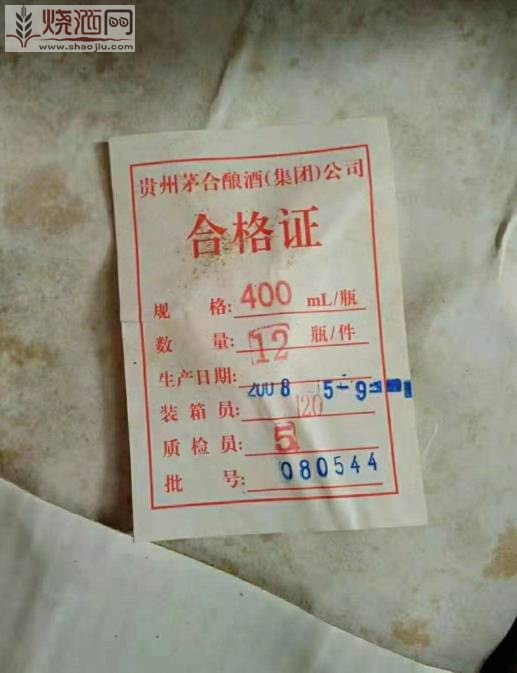 烧酒网
www.shaojiu.com
贵州茅合酿酒(集团)公司
合格证
规 格: 400 mL/瓶
数 量: 12 瓶/件
生产日期: 2008 5-9
装箱员: 120
质检员: 5
批 号: 080544